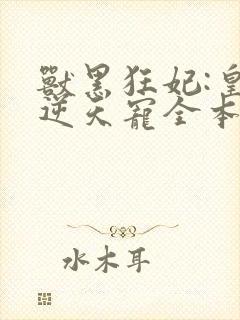 獸黑狂妃:皇
逆天寵全本
水木耳